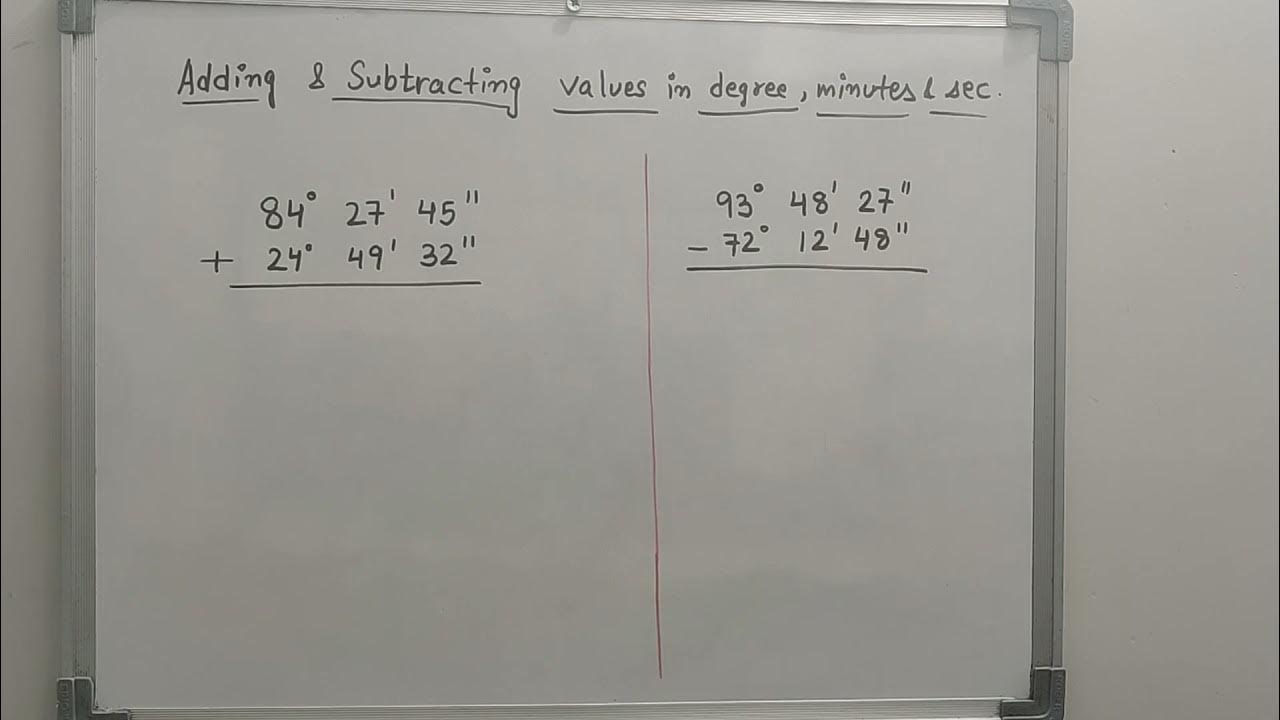 Adding & Subtracting values in degree, minutes & sec.
84° 27' 45"
+ 24° 49' 32"
93° 48' 27"
- 72° 12' 48"